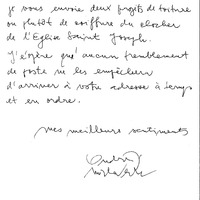 je vous envoie deux projets de toiture
ou plutôt de coiffure du clocher
de l'Eglise Saint Joseph.
J'espère qu'aucun tremblement
de poste ne les empêchera
d'arriver à votre adresse à temps
et en ordre.
mes meilleurs sentiments